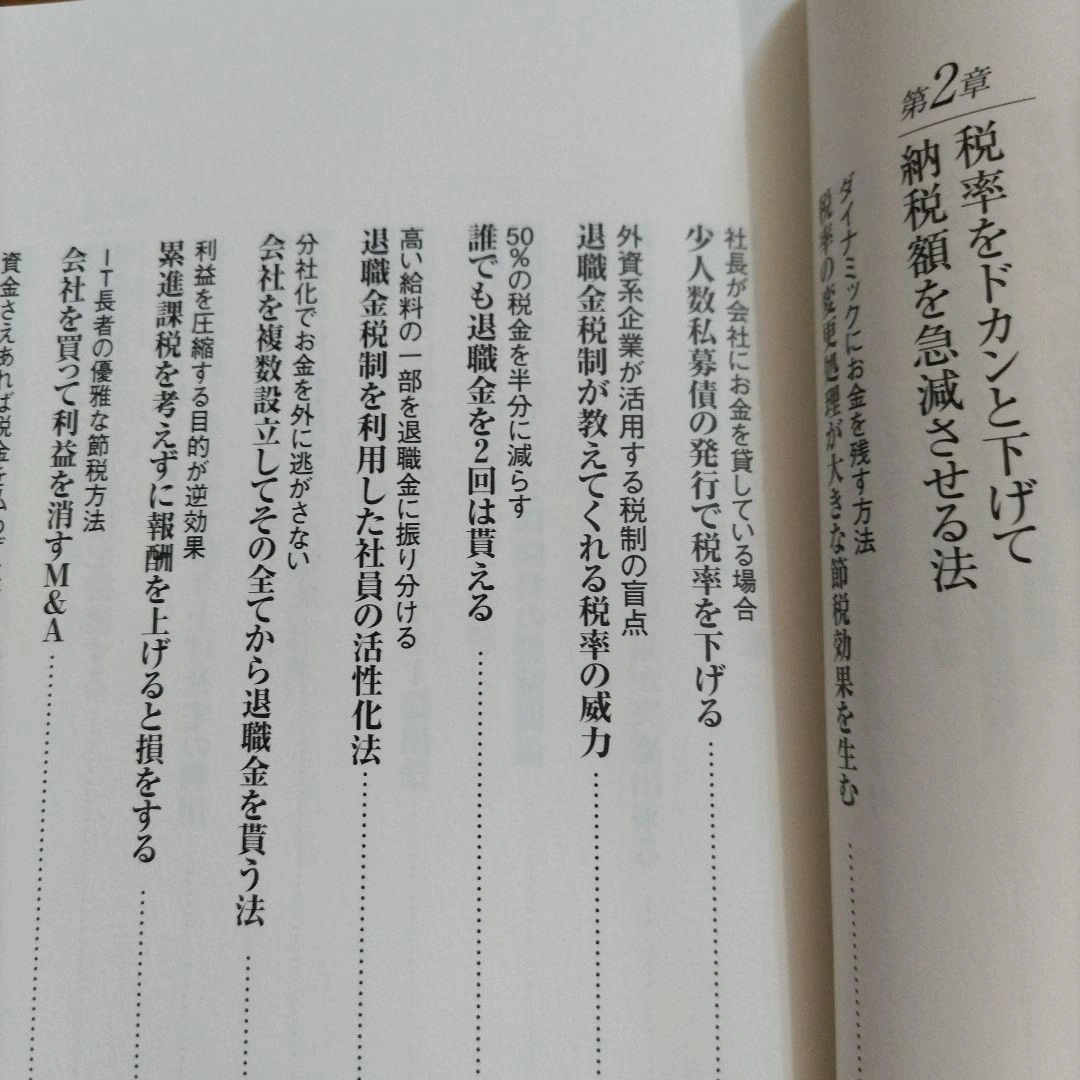 第2章
税率をドカンと下げて
納税額を急減させる法
ダイナミックにお金を残す方法
税率の変更処理が大きな節税効果を生む
社長が会社にお金を貸している場合
少人数私募債の発行で税率を下げる
外資系企業が活用する税制の盲点
退職金税制が教えてくれる税率の威力
50%の税金を半分に減らす
誰でも退職金を2回は貰える
高い給料の一部を退職金に振り分ける
退職金税制を利用した社員の活性化法
分社化でお金を外に逃がさない
会社を複数設立してその全てから退職金を貰う法
利益を圧縮する目的が逆効果
累進課税を考えずに報酬を上げると損をする
IT長者の優雅な節税方法
会社を買って利益を消すM&A
資金さえあれば税金を